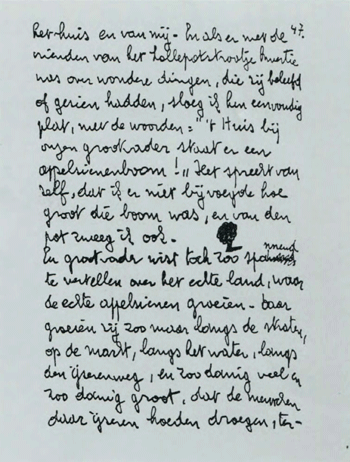 het huis en van mij. En als er met de 47.
vrienden van het Lollepotstraatje kwestie
was over wondere dingen, die zij beleefd
of gezien hadden, sloeg ik hen eenvoudig
plat, met de woorden: "'t Huis bij
onzen grootvader staat er een
appelsienenboom!" Het spreekt van
zelf, dat ik er niet bijvoegde hoe
groot die boom was, en van den
pot zweeg ik ook.
En grootvader wist toch zoo spannend
te vertellen over het echte land, waar
de echte appelsienen groeien. Daar
groeien zij zoo maar langs de straten,
op de markt, langs het water, langs
den ijzerenweg, en zoo danig veel en
zoo danig groot, dat de menschen
daar ijzeren hoeden droegen, ter-